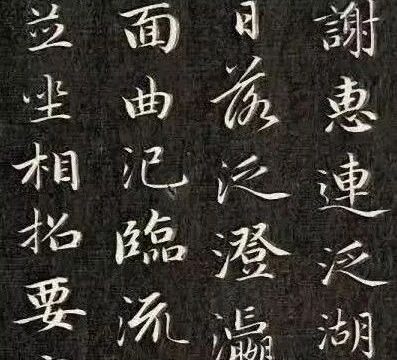 謝惠連泛湖
日落泛澄瀛
面曲汜臨流
並坐相招要